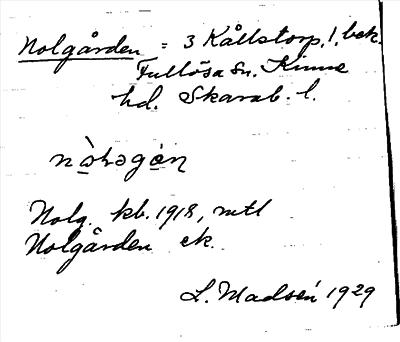 Nolgården = 3 Källstorp, !, bek.
Fullösa sn. Kinne
hd. Skarab. l.
Nolg. kb. 1918, mtl
Nolgården ek.
L. Madsén 1929